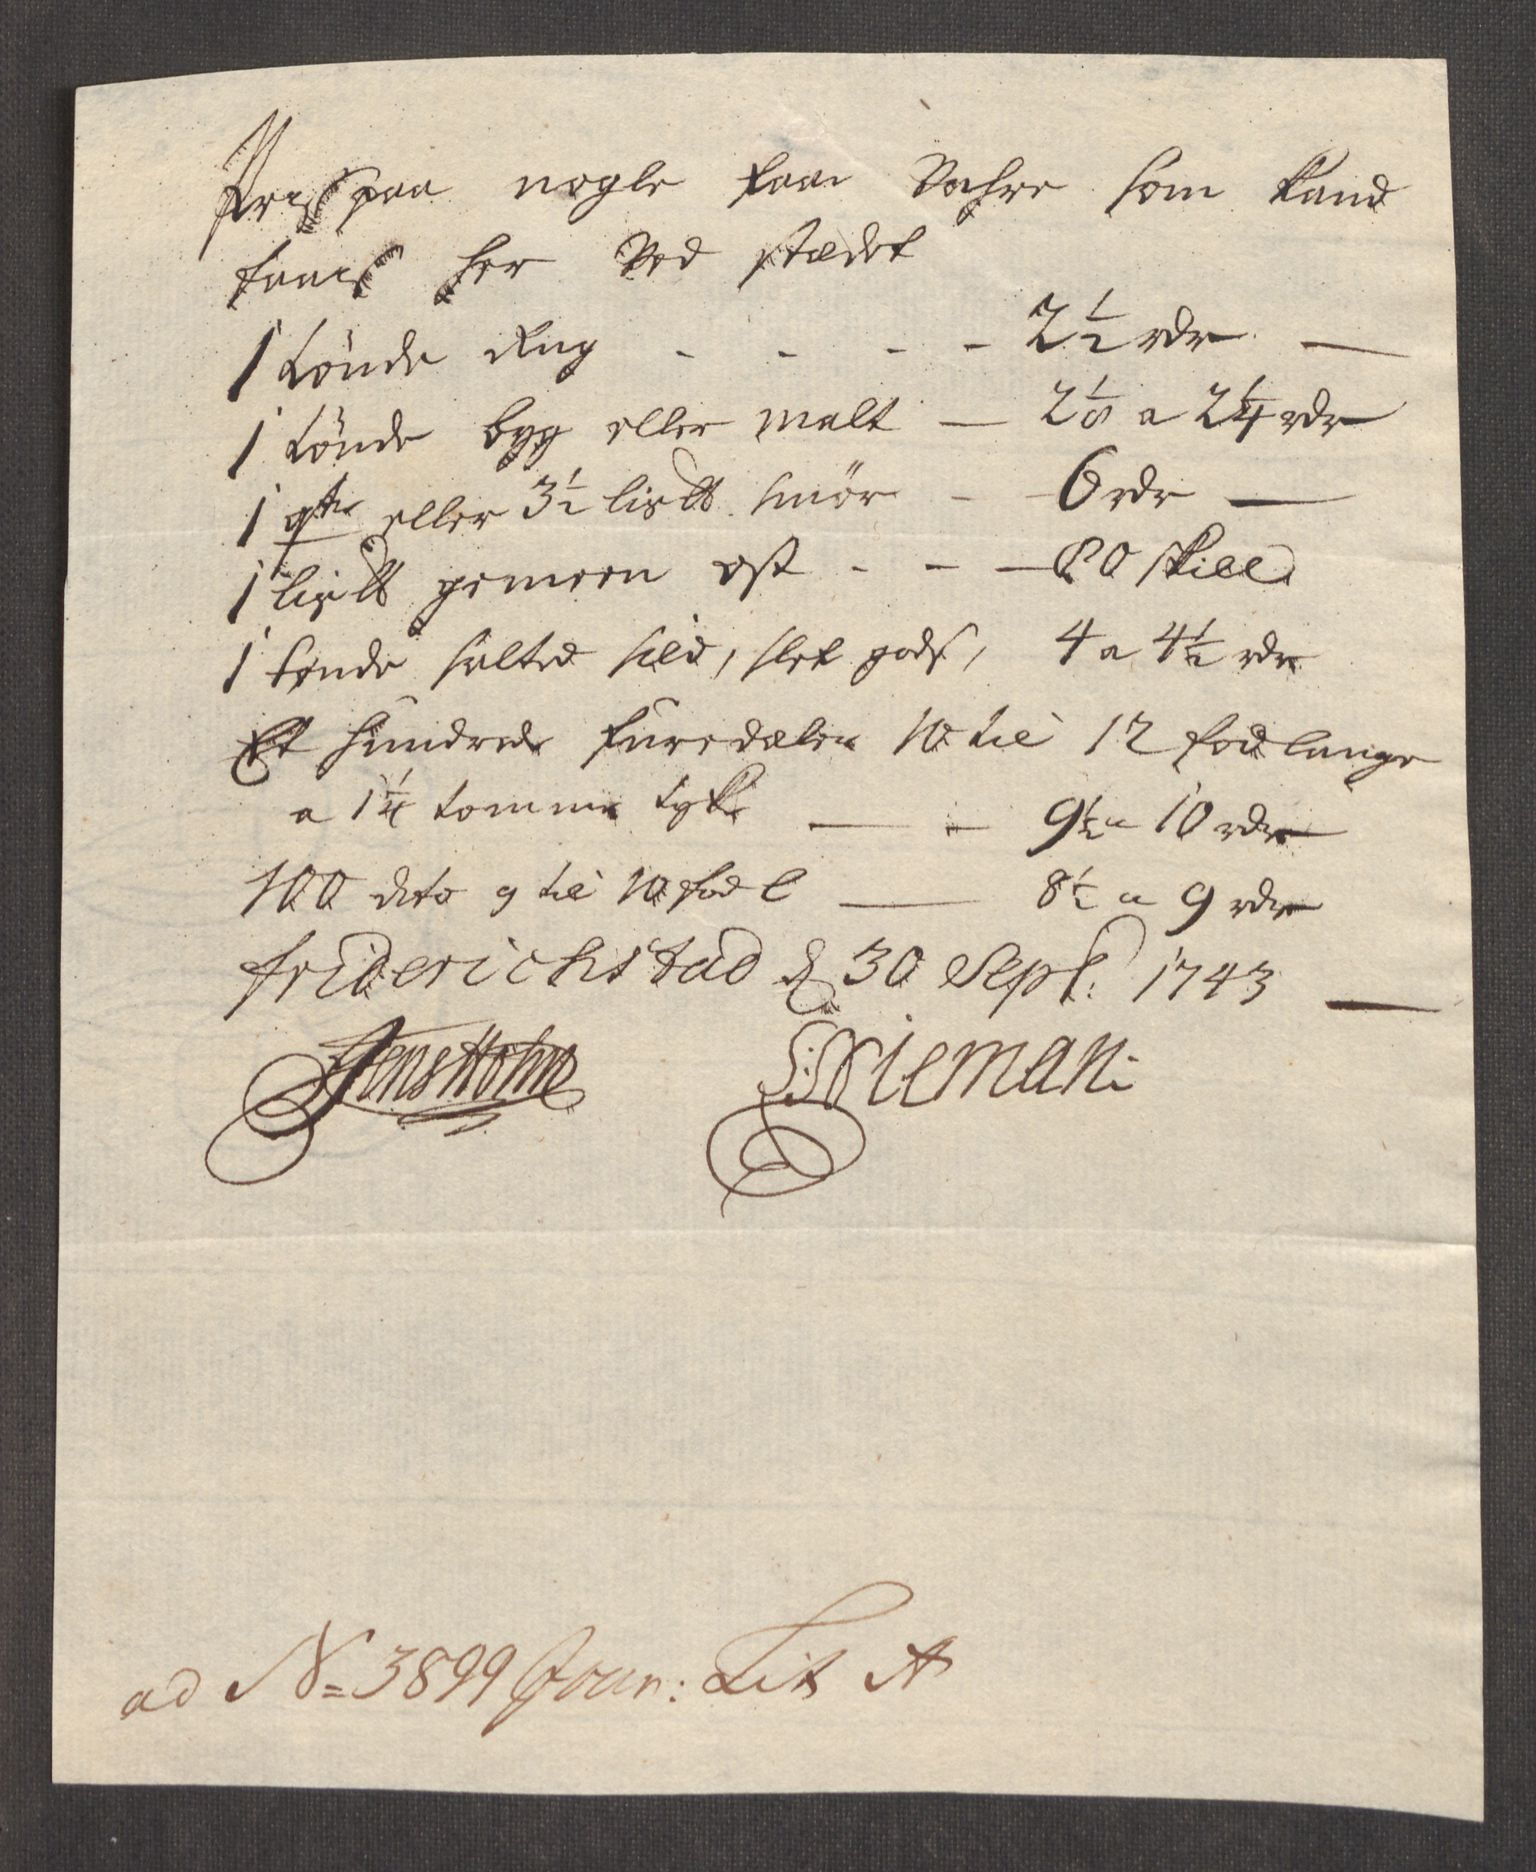 Pris paa nogle faa Vahre som kand
faaes her Ved stædet
1 tönde Rug - - - - 2 1/2 rdr —
1 tönde byg eller malt — 2 1/8 a 2 1/4 rdr
1 qtr eller 3 1/2 lis℔ smör - - 6 rdr —
1 lis℔ gemeen ost - - — 80 skill
1 tønde salted sild, slet gods, 4 a 4 1/2 rdr
Et hundrede furedæler 10 til 12 fod lange
a 1 1/4 tomme tyke — - 9 1/2 a 10 rdr
100 dito 9 til 10 fod l — 8 1/2 a 9 rdr
friderichstad d 30 Sept: 1743 —
Jens Holm S: Wieman:
ad No= 3899 Jour: Lit A